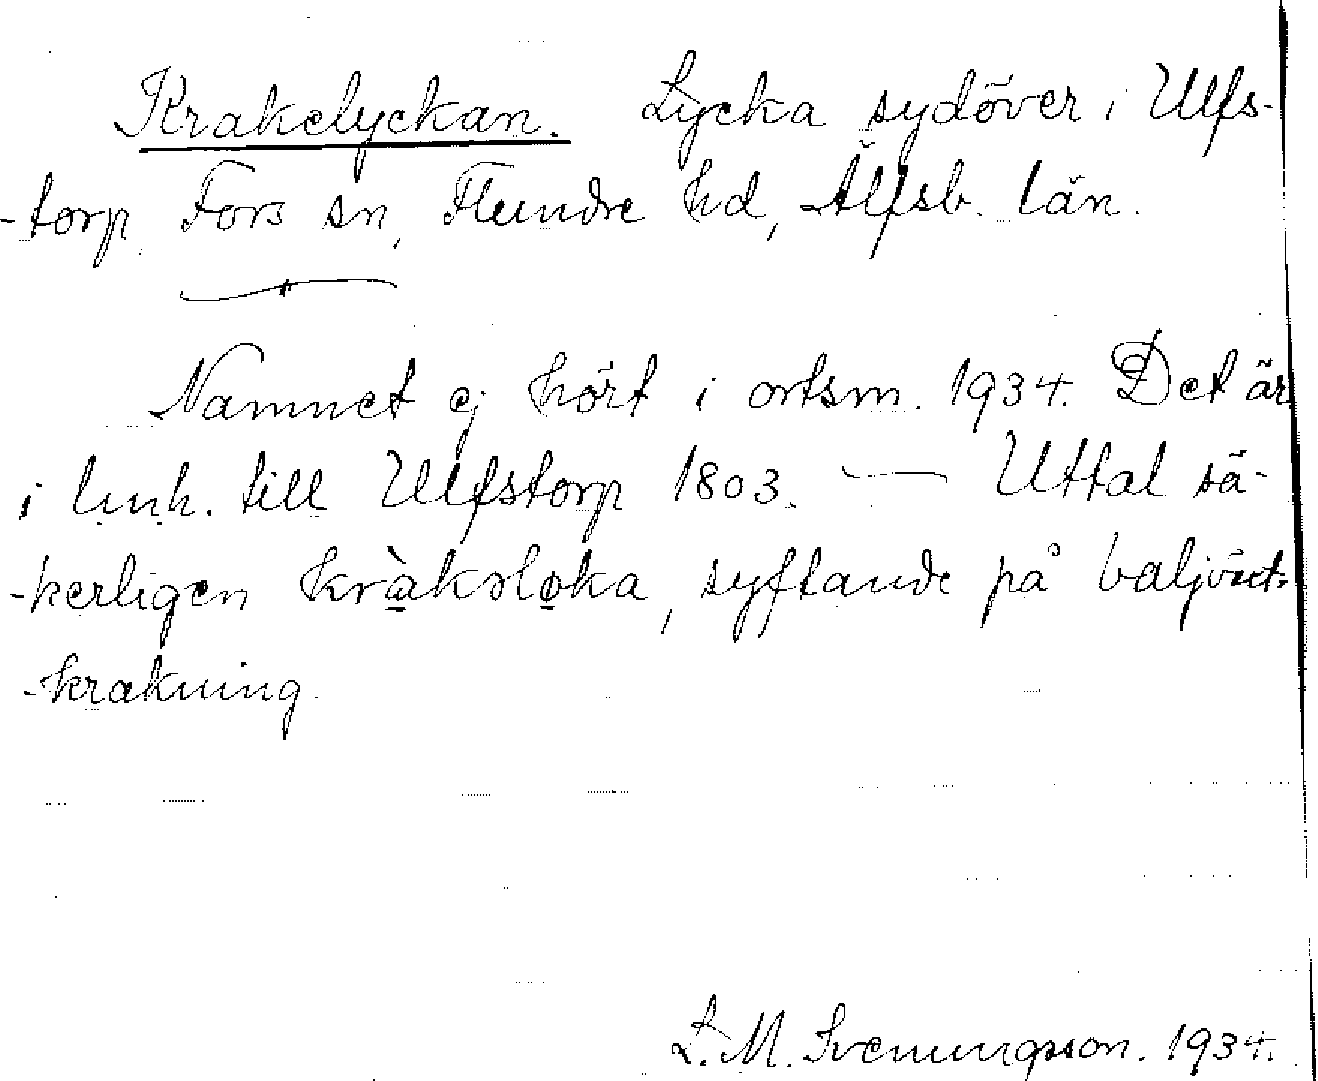 Krakelyckan. Lycka sydöver i Ulfs-
-torp, Fors sn, Flundre hd, Älfsb. län.
Namnet ej hört i ortsm. 1934. Det är
i luh. till Ulfstorp 1803. — Uttal sä-
-kerligen kràkəløka, syftande på baljväxt-
-krakning.
L. M. Svenungsson. 1934.